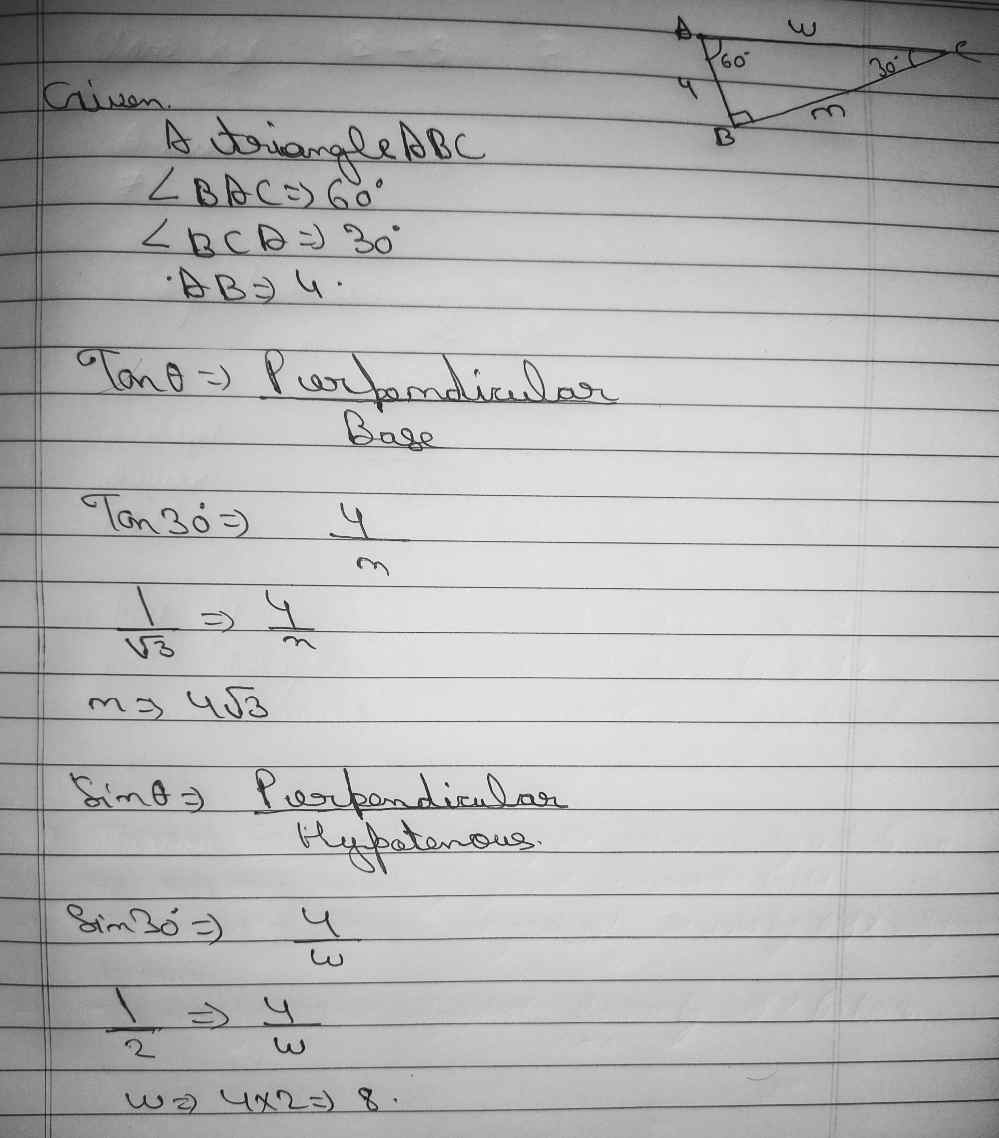 A w C
60° 30°
4 m
B
Given.
A triangle ABC
∠BAC => 60°
∠BCA => 30°
AB => 4.
Tanθ => Perpendicular
Base
Tan30° => 4
m
1 => 4
√3 m
m => 4√3
Sinθ => Perpendicular
Hypotenous.
Sin30° => 4
w
1 => 4
2 w
w => 4×2 => 8.